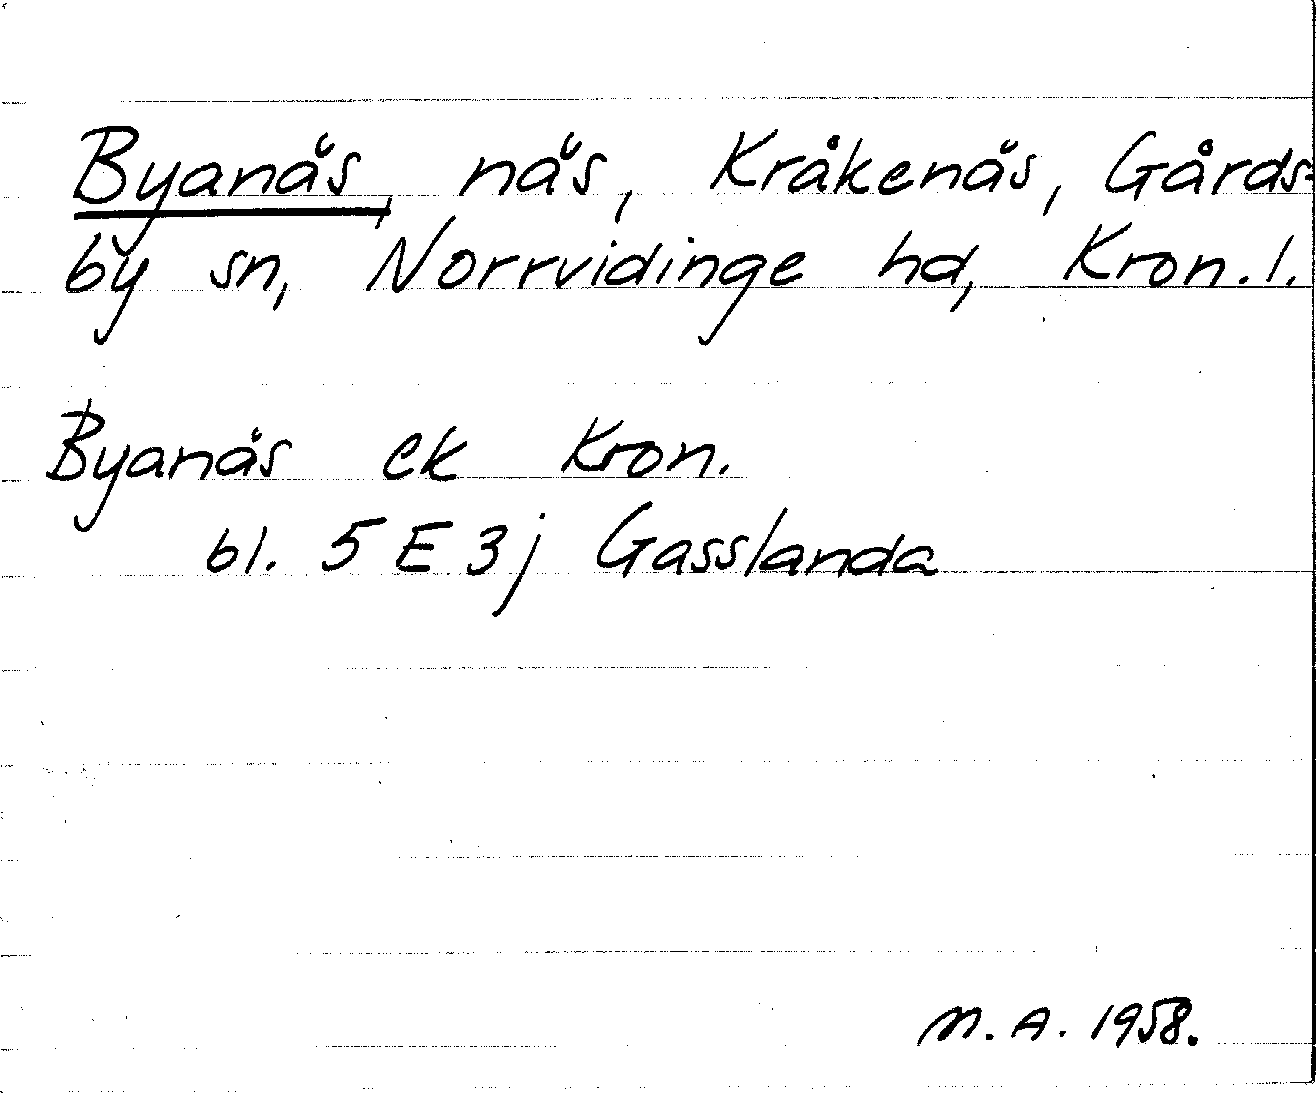 Byanäs, näs, Kråkenäs, Gårds-
by sn, Norrvidinge hd, Kron. l.
Byanäs ek Kron.
bl. 5 E 3j Gasslanda
M. A. 1958.